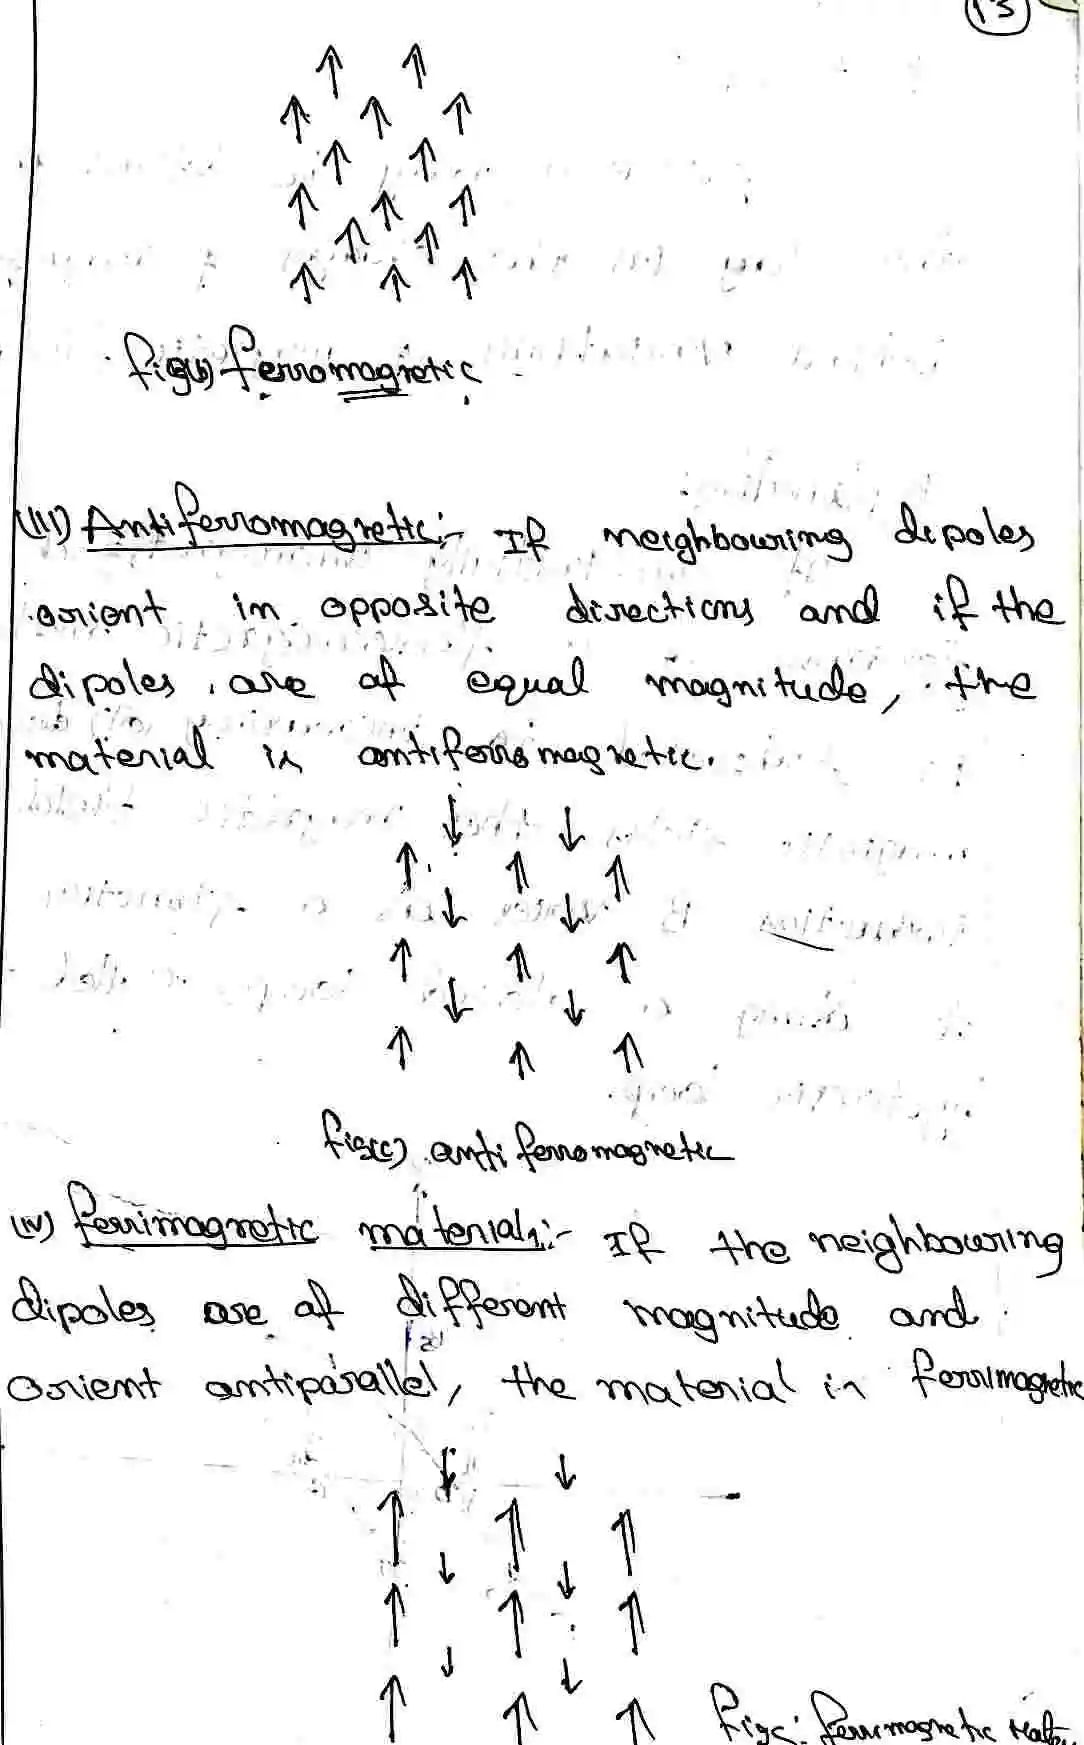 13
fig(b) ferromagnetic
(III) Antiferromagnetic:- If neighbouring dipoles
orient in opposite directions and if the
dipoles are of equal magnitude, the
material is antiferromagnetic.
fig(c) antiferromagnetic
(iv) ferrimagnetic materials:- If the neighbouring
dipoles are of different magnitude and
orient antiparallel, the material is ferrimagnetic
fig: ferrimagnetic